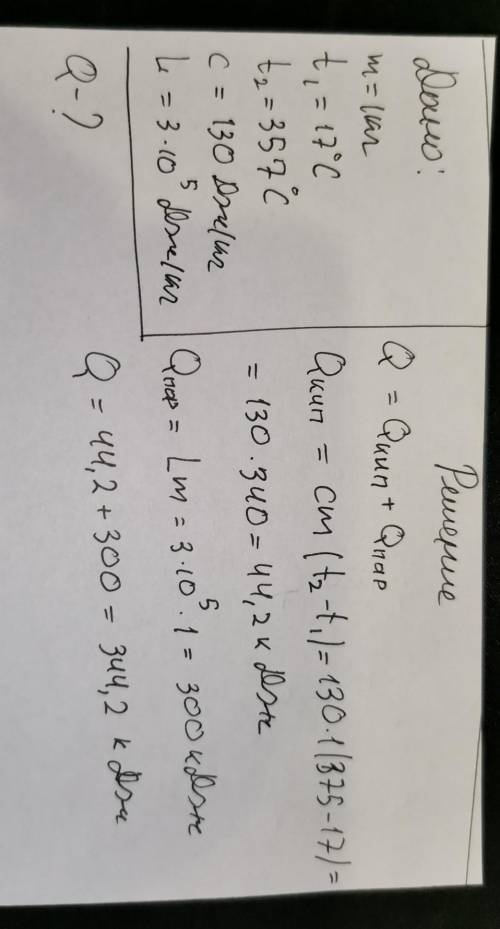 Дано:
m = 1 кг
t₁ = 17°C
t₂ = 357°C
c = 130 Дж/кг
L = 3·10⁵ Дж/кг
Q - ?
Решение
Q = Qкип + Qпар
Qкип = cm(t₂-t₁) = 130·1(375-17) =
= 130·340 = 44,2 кДж
Qпар = Lm = 3·10⁵·1 = 300 кДж
Q = 44,2 + 300 = 344,2 кДж